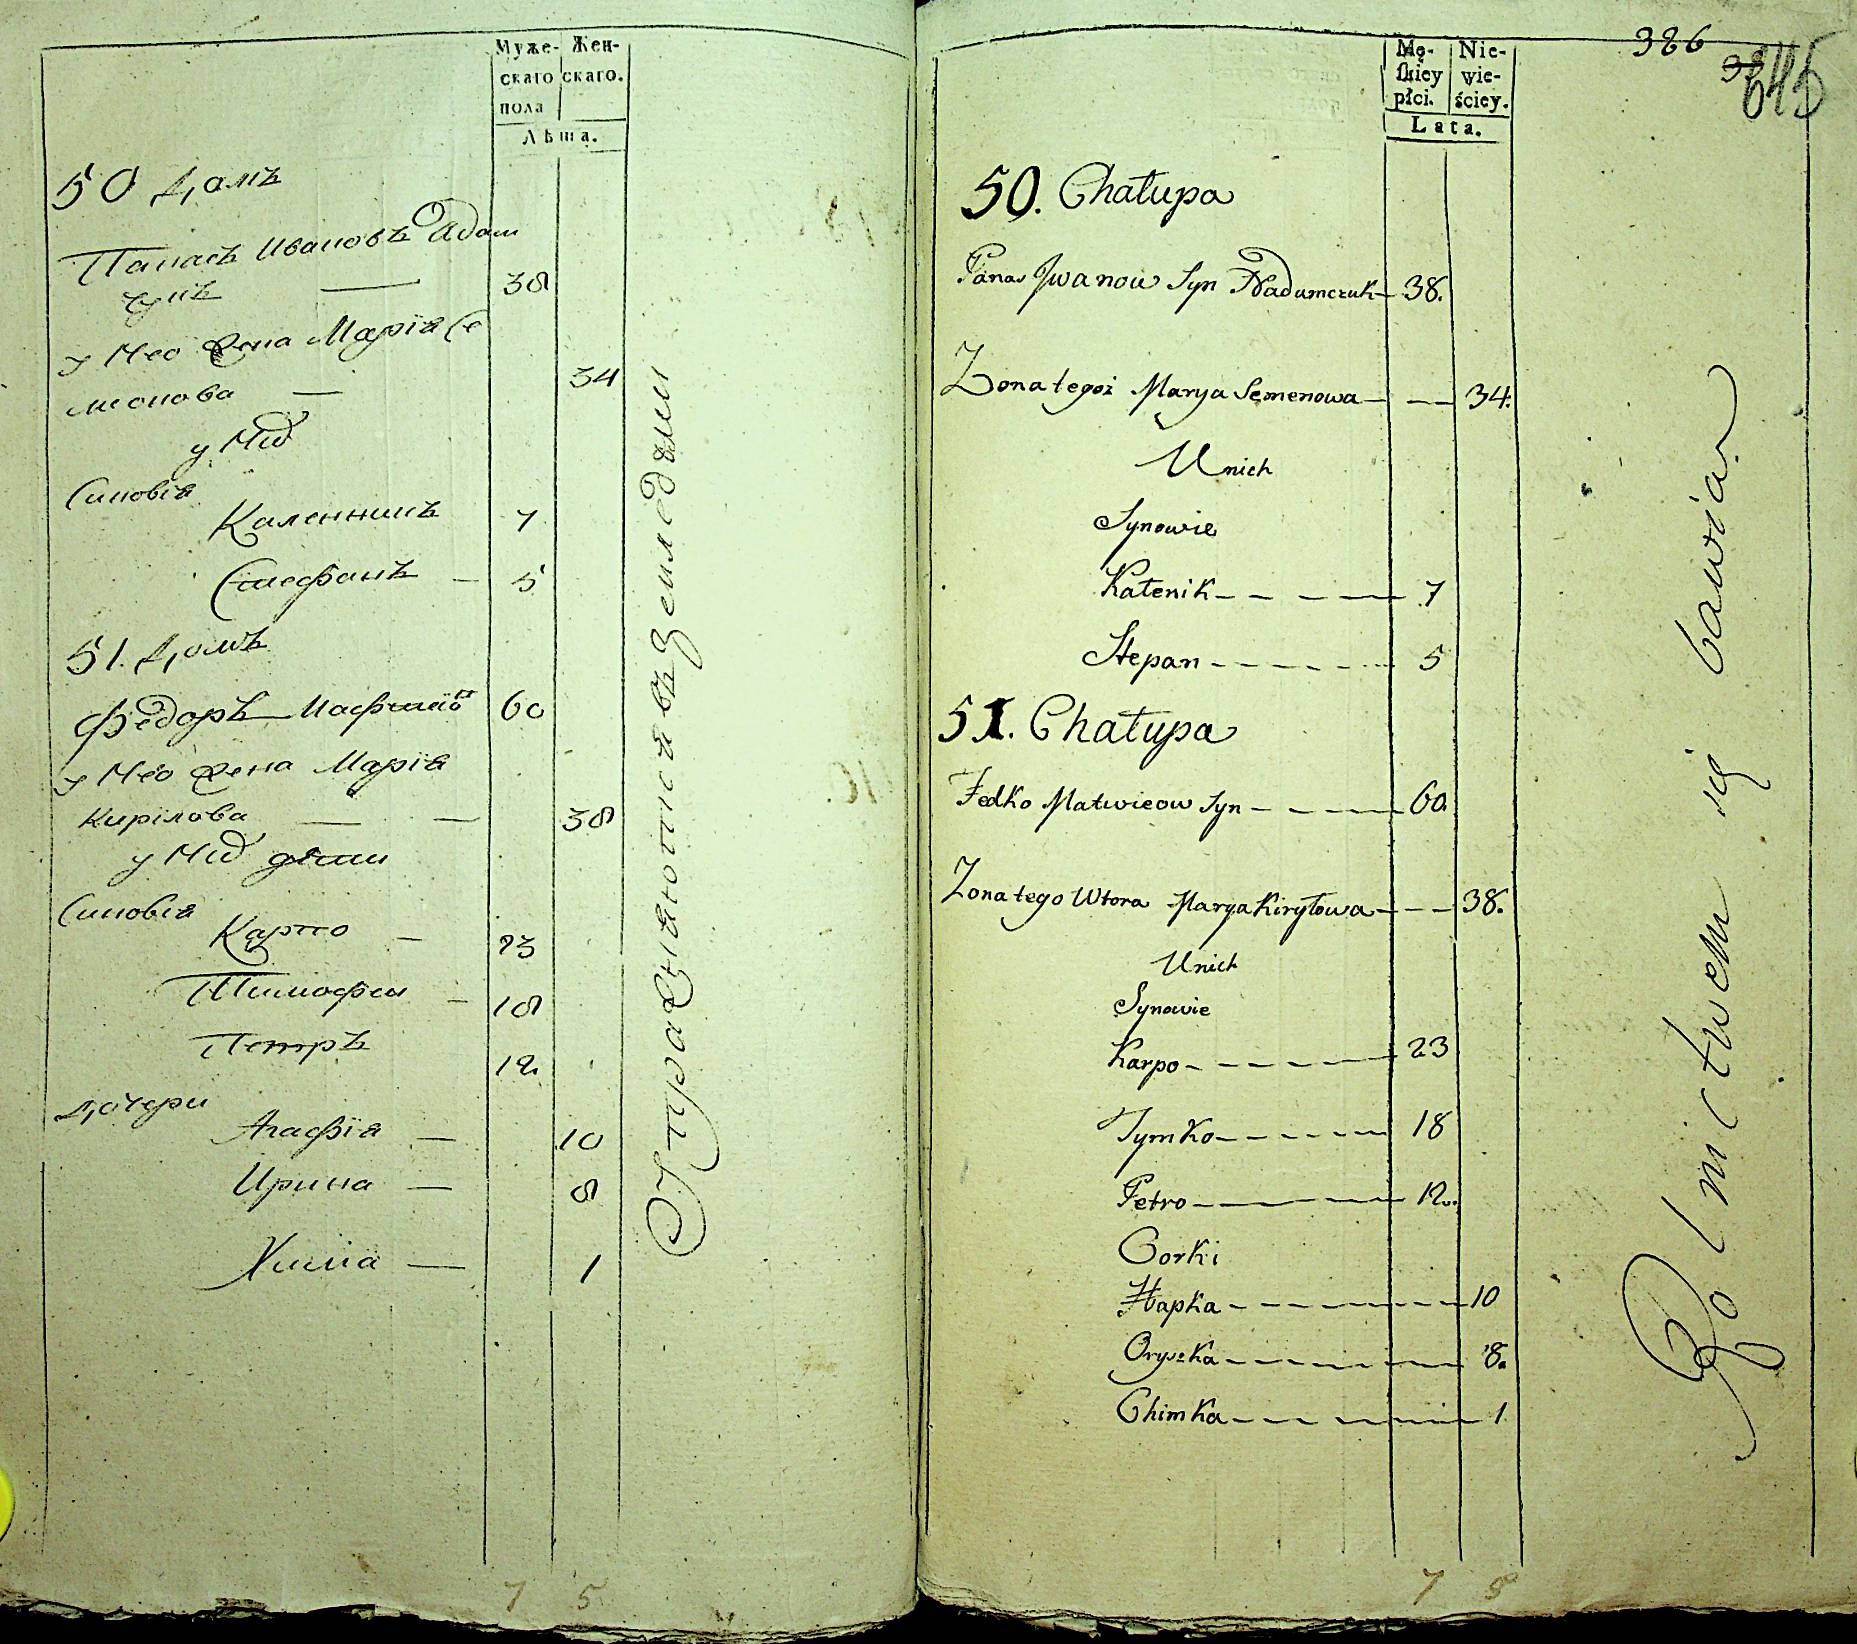 Муже- Жен-
скаго скаго.
пола
Лѣта.
50 Домъ
Панасъ Ивановъ Адам
чукъ — 38
у Нео жена Марїя Се
менова — 34
у Них
Синовья
Каленникъ 7
Стефанъ — 5
51. Домъ
Федоръ Матвїев 60
у Нео жена Марїя
Кирїлова — — 38
у Них дети
Синовья
Карпо — 23
Тимофеи — 18
Петръ 12.
Дочери
Агафїя — 10
Ирина — 8
Химïа — 1
Упражняются въ Земледѣлïи
7 5
386
645
Mę- Nie-
skiey wie-
płci. ściey.
Lata.
50. Chałupa
Panas Jwanow Syn Nadamczuk 38.
Zona tegoż Marya Semenowa — — 34.
U nich
Synowie
Katenik — — — 7
Stepan - - - - - 5
51. Chałupa
Fedko Matwieow Syn — — — 60
Zona tego Wtora Marya Kiryłowa — — 38.
U nich
Synowie
Karpo — — — — 23
Tymko — — — — 18
Petro — — — 12.
Corki
Hapka — — — — 10
Oryszka — — — — 8.
Chimka — — — — 1
Rolnictwem się bawią.
7 5